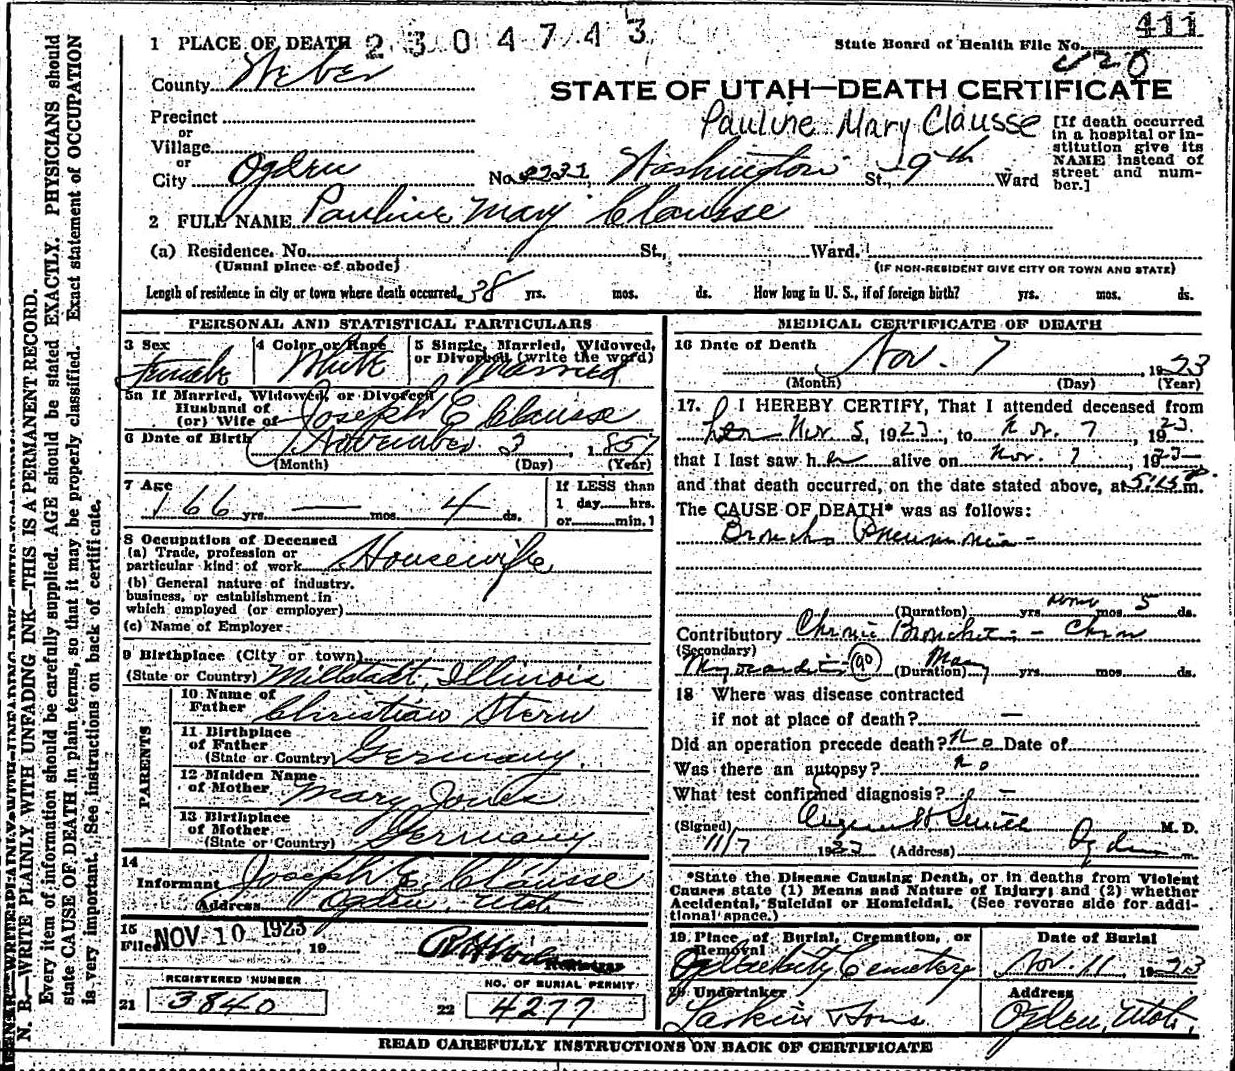 411
2304743
1 PLACE OF DEATH
State Board of Health File No.
420
County Weber
STATE OF UTAH—DEATH CERTIFICATE
Precinct
or
Village
or
City Ogden No. 2232 Washington St., 9th Ward
Pauline Mary Clausse
[If death occurred
in a hospital or in-
stitution give its
NAME instead of
street and num-
ber.]
2 FULL NAME Pauline Mary Clausse
(a) Residence. No. St., Ward.
(Usual place of abode) (IF NON-RESIDENT GIVE CITY OR TOWN AND STATE)
Length of residence in city or town where death occurred 38 yrs. mos. ds. How long in U. S., if of foreign birth? yrs. mos. ds.
PERSONAL AND STATISTICAL PARTICULARS
3 Sex 4 Color or Race 5 Single, Married, Widowed,
or Divorced (write the word)
Female White Married
5a If Married, Widowed, or Divorced
Husband of
(or) Wife of Joseph E Clausse
6 Date of Birth November 3, 1857
(Month) (Day) (Year)
7 Age
66 yrs. — mos. 4 ds.
If LESS than
1 day hrs.
or min.
8 Occupation of Deceased
(a) Trade, profession or
particular kind of work Housewife
(b) General nature of industry,
business, or establishment in
which employed (or employer)
(c) Name of Employer
9 Birthplace (City or town)
(State or Country) Millstadt, Illinois
PARENTS
10 Name of
Father Christian Stern
11 Birthplace
of Father
(State or Country) Germany.
12 Maiden Name
of Mother Mary Jones
13 Birthplace
of Mother
(State or Country) Germany
14
Informant Joseph E. Clausse
Address Ogden, Utah.
15
Filed NOV 10 1923, 19
Registrar
REGISTERED NUMBER
21 3840
NO. OF BURIAL PERMIT
22 4277
MEDICAL CERTIFICATE OF DEATH
16 Date of Death Nov. 7, 1923
(Month) (Day) (Year)
17. I HEREBY CERTIFY, That I attended deceased from
her Nov 5, 1923, to Nov. 7, 1923
that I last saw her alive on Nov. 7, 1923
and that death occurred, on the date stated above, at 5:15 P m.
The CAUSE OF DEATH* was as follows:
Broncho Pneumonia -
(Duration) yrs. mos. 5 ds.
Contributory Chronic Bronchitis - Chron
(Secondary)
Myocarditis 90 (Duration) Many yrs. mos. ds.
18 Where was disease contracted
if not at place of death? —
Did an operation precede death? No Date of
Was there an autopsy? no
What test confirmed diagnosis? —
(Signed) M. D.
11/7 1923 (Address) Ogden
*State the Disease Causing Death, or in deaths from Violent
Causes state (1) Means and Nature of Injury; and (2) whether
Accidental, Suicidal or Homicidal. (See reverse side for addi-
tional space.)
19 Place of Burial, Cremation, or
Removal Date of Burial
Ogden City Cemetery Nov. 11, 1923
20 Undertaker Address
Larkin & Sons Ogden, Utah.
READ CAREFULLY INSTRUCTIONS ON BACK OF CERTIFICATE
N. B.—WRITE PLAINLY WITH UNFADING INK—THIS IS A PERMANENT RECORD.
Every item of information should be carefully supplied. AGE should be stated EXACTLY. PHYSICIANS should
state CAUSE OF DEATH in plain terms, so that it may be properly classified. Exact statement of OCCUPATION
is very important. See instructions on back of certificate.